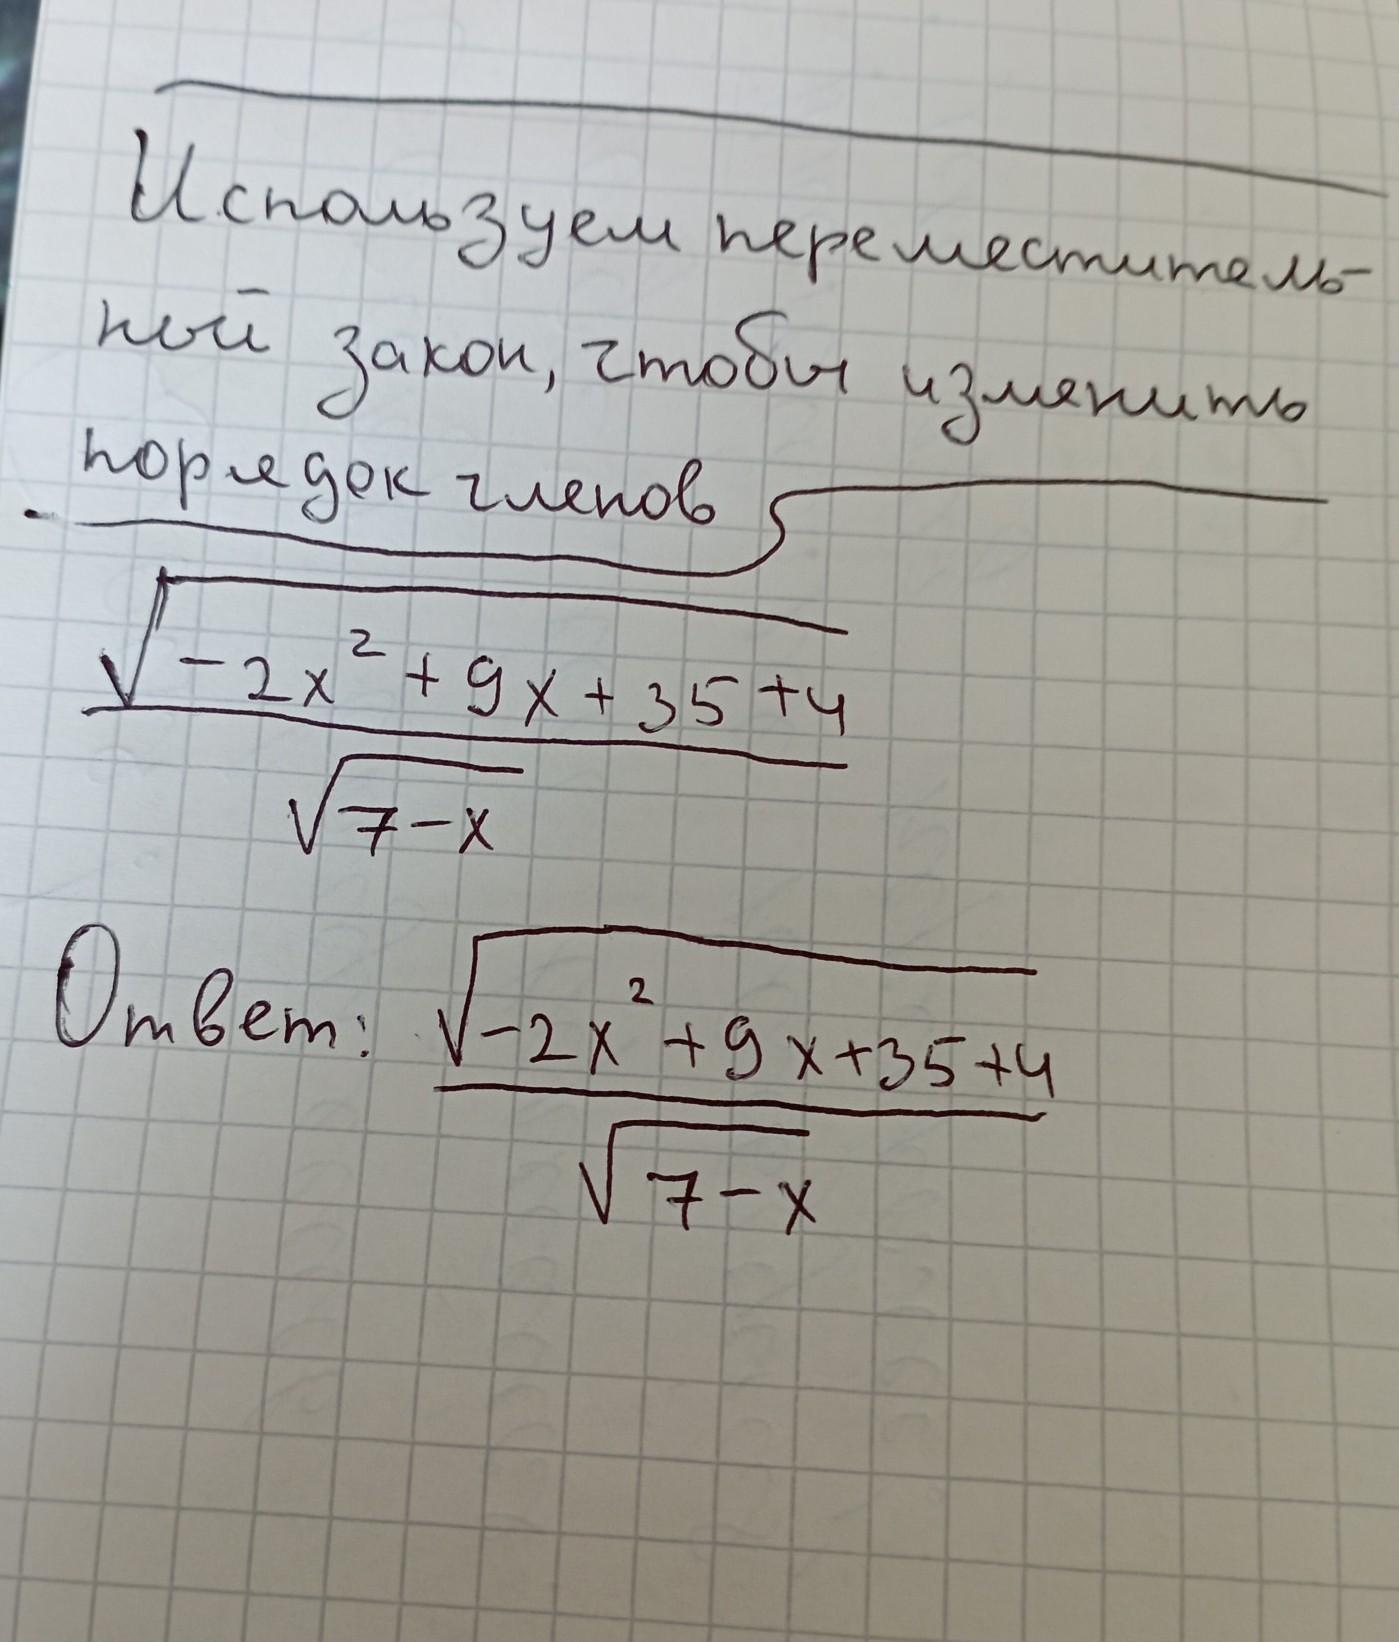 Используем переместитель-
ный закон, чтобы изменить
порядок членов
√-2x² + 9x + 35 + 4
√7 - x
Ответ: √-2x² + 9x + 35 + 4
√7 - x